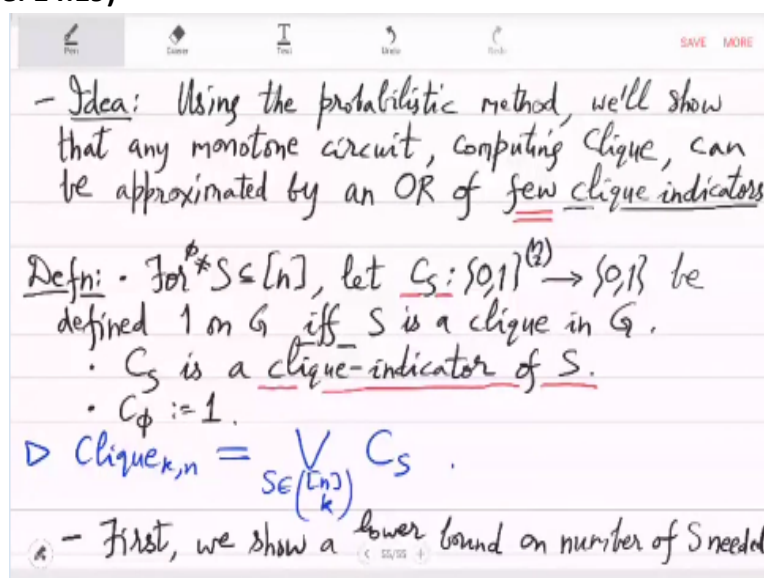 Pen Eraser Text Undo Redo SAVE MORE
- Idea: Using the probabilistic method, we'll show
that any monotone circuit, computing Clique, can
be approximated by an OR of few clique indicators
Defn: • For ϕ≠S⊆[n], let C_S: {0,1}^(n choose 2) → {0,1} be
defined 1 on G iff S is a clique in G.
• C_S is a clique-indicator of S.
• C_ϕ := 1.
▷ Clique_{k,n} = ⋁_{S∈([n] choose k)} C_S .
- First, we show a lower bound on number of S needed
< 55/55 +